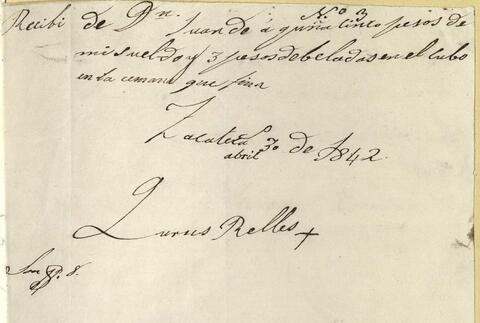 No 3
Recibi de Dn. Juan de á quiña cinco pesos de
mi sueldo y 3 pesos de beladas en el cubo
en la cemana que fina
Zacatecas
abril 30 de 1842.
Relles
Son 8 p. 8.